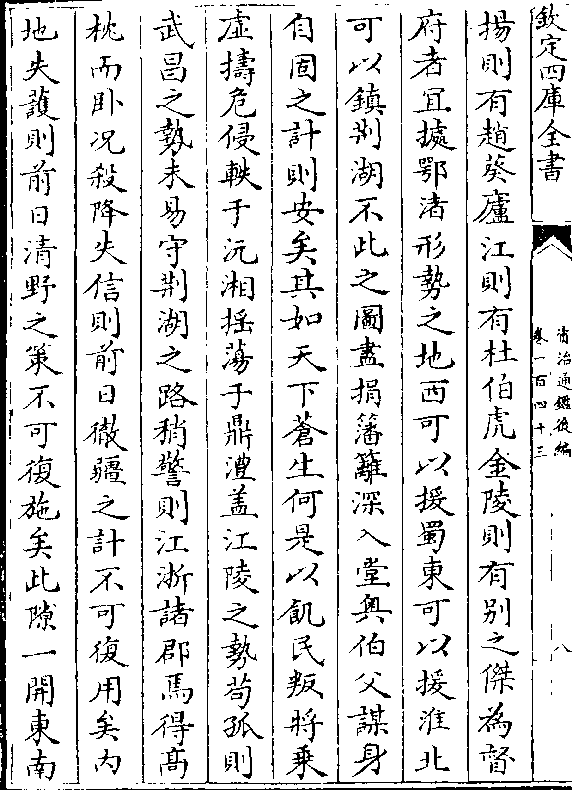 欽定四庫全書
資治通鑑後編
卷一百四十三
八
揚則有趙葵廬江則有杜伯虎金陵則有別之傑為督
府者宜據鄂渚形勢之地西可以援蜀東可以援淮北
可以鎮荆湖不此之圖盡捐藩籬深入堂奥伯父謀身
自固之計則安矣其如天下蒼生何是以飢民叛將乗
虚擣危侵軼于沅湘揺蕩于鼎澧盖江陵之勢苟孤則
武昌之勢未易守荆湖之路稍警則江浙諸郡焉得髙
枕而卧况殺降失信則前日徹疆之計不可復用矣内
地失護則前日清野之策不可復施矣此隙一開東南